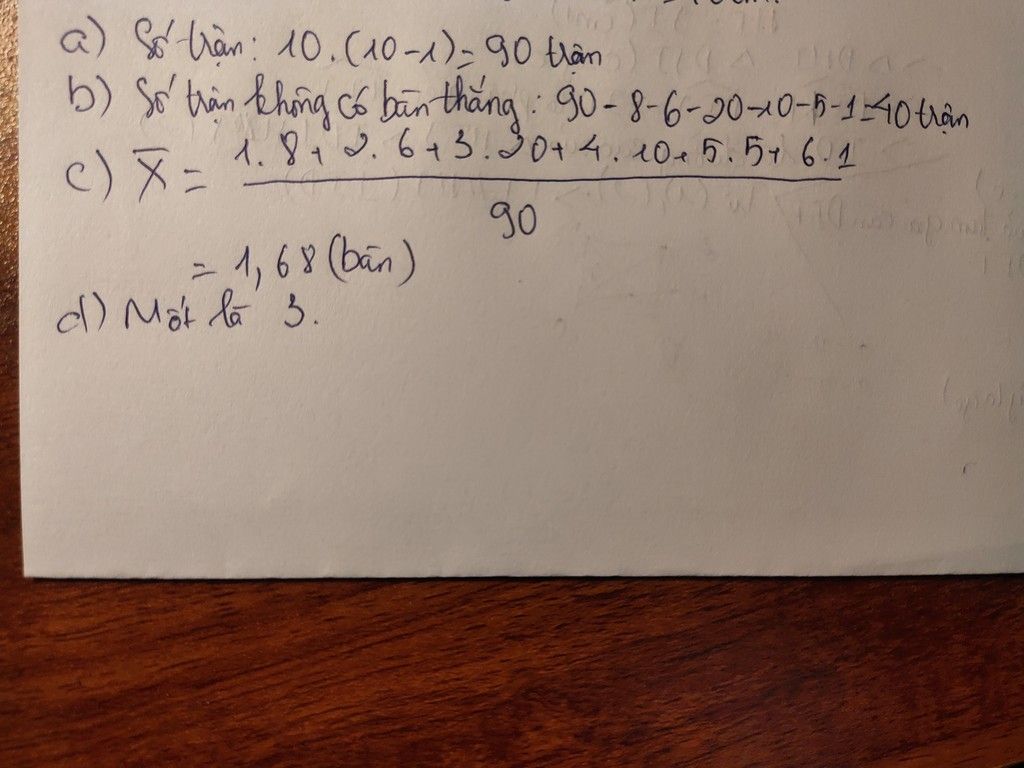 a) Số trận: 10.(10-1)=90 trận
b) Số trận không có bàn thắng: 90-8-6-20-10-5-1=40 trận
c) X̅ = 1.8+2.6+3.20+4.10+5.5+6.1
90
= 1,68 (bàn)
d) Mốt là 3.